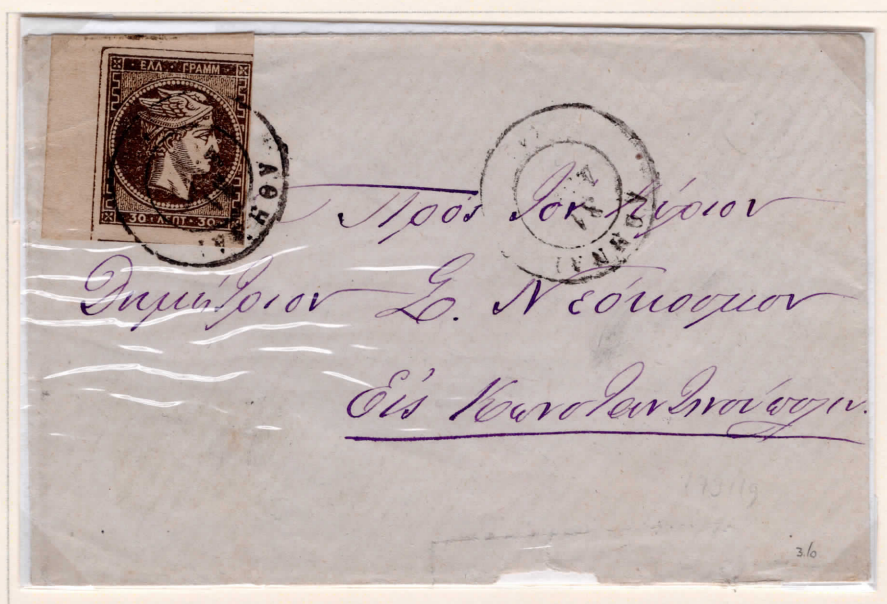 ΕΛΛ ΓΡΑΜΜ
30 ΛΕΠΤ 30
Πρὸς Τὸν Κύριον
Δημήτριον Σ. Νεόκοσμον
Εἰς Κωνσταντινούπολιν.
3.10